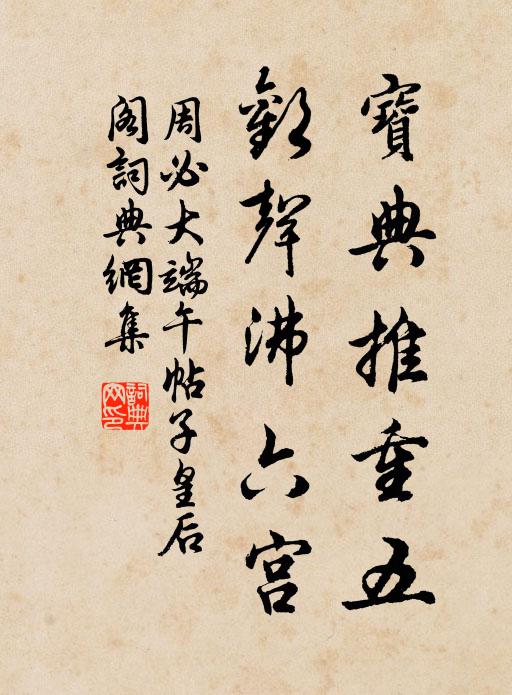 寶典推重五
歡聲沸六宮
周必大端午帖子皇后
閣詞典網集
詞典網印